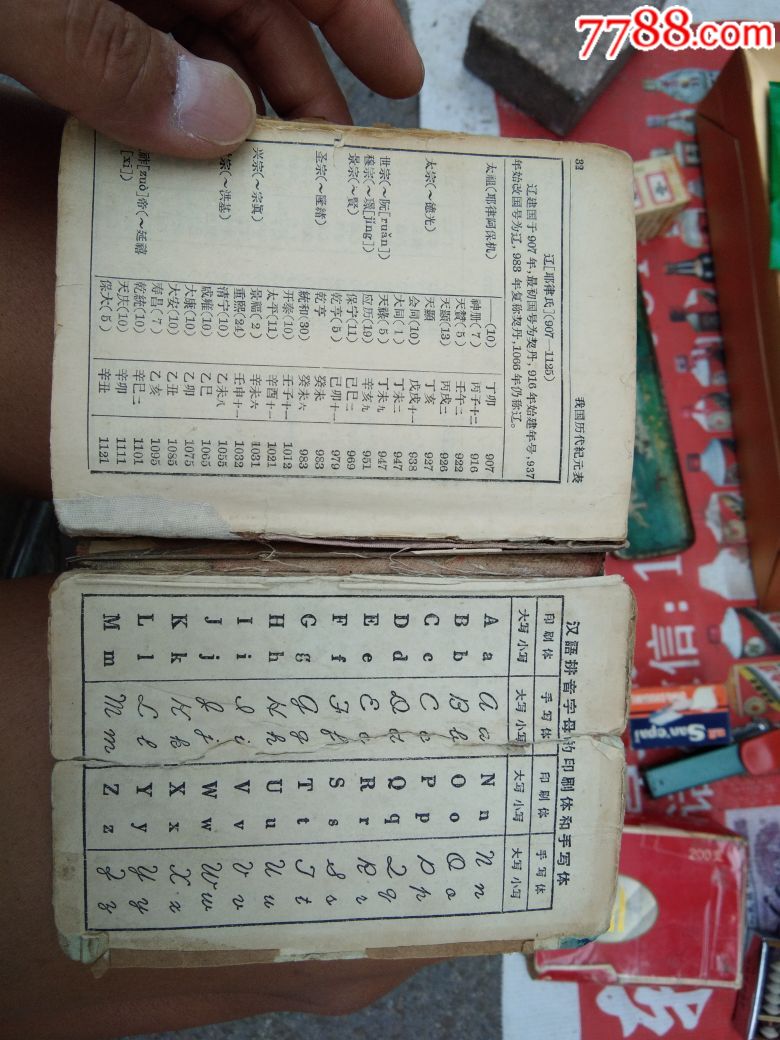 7788.com
我国历代紀元表 33
辽[耶律氏](907—1125)
辽建国于 907 年,最初国号为契丹, 916 年始建年号, 937
年始改国号为辽, 983 年复称契丹, 1066 年仍称辽。
太祖(耶律阿保机) —(10) 丁卯 907
神册(7) 丙子十二 916
天贊(5) 壬午二 922
天顯(13) 丙戌二 926
太宗(～德光) 天顯 丁亥 927
会同(10) 戊戌十一 938
大同(1) 丁未二 947
世宗(～阮[ruǎn]) 天祿(5) 丁未九 947
穆宗(～璟[jǐng]) 应历(19) 辛亥九 951
景宗(～賢) 保宁(11) 己巳二 969
乾亨(5) 己卯十一 979
圣宗(～隆緒) 乾亨 癸未 983
統和(30) 癸未六 983
开泰(10) 壬子十一 1012
太平(11) 辛酉十一 1021
兴宗(～宗真) 景福(2) 辛未六 1031
重熙(24) 壬申十一 1032
宗(～洪基) 清宁(10) 乙未八 1055
咸雍(10) 乙巳 1065
大康(10) 乙卯 1075
大安(10) 乙丑 1085
寿昌(7) 乙亥 1095
祚[zuò]帝(～延禧[xǐ]) 乾統(10) 辛巳二 1101
天庆(10) 辛卯 1111
保大(5) 辛丑 1121
汉語拼音字母的印刷体和手写体
印刷体 手写体 印刷体 手写体
大写 小写 大写 小写 大写 小写 大写 小写
A a A a N n N n
B b B b O o O o
C c C c P p P p
D d D d Q q Q q
E e E e R r R r
F f F f S s S s
G g G g T t T t
H h H h U u U u
I i I i V v V v
J j J j W w W w
K k K k X x X x
L l L l Y y Y y
M m M m Z z Z z
200支
信:1